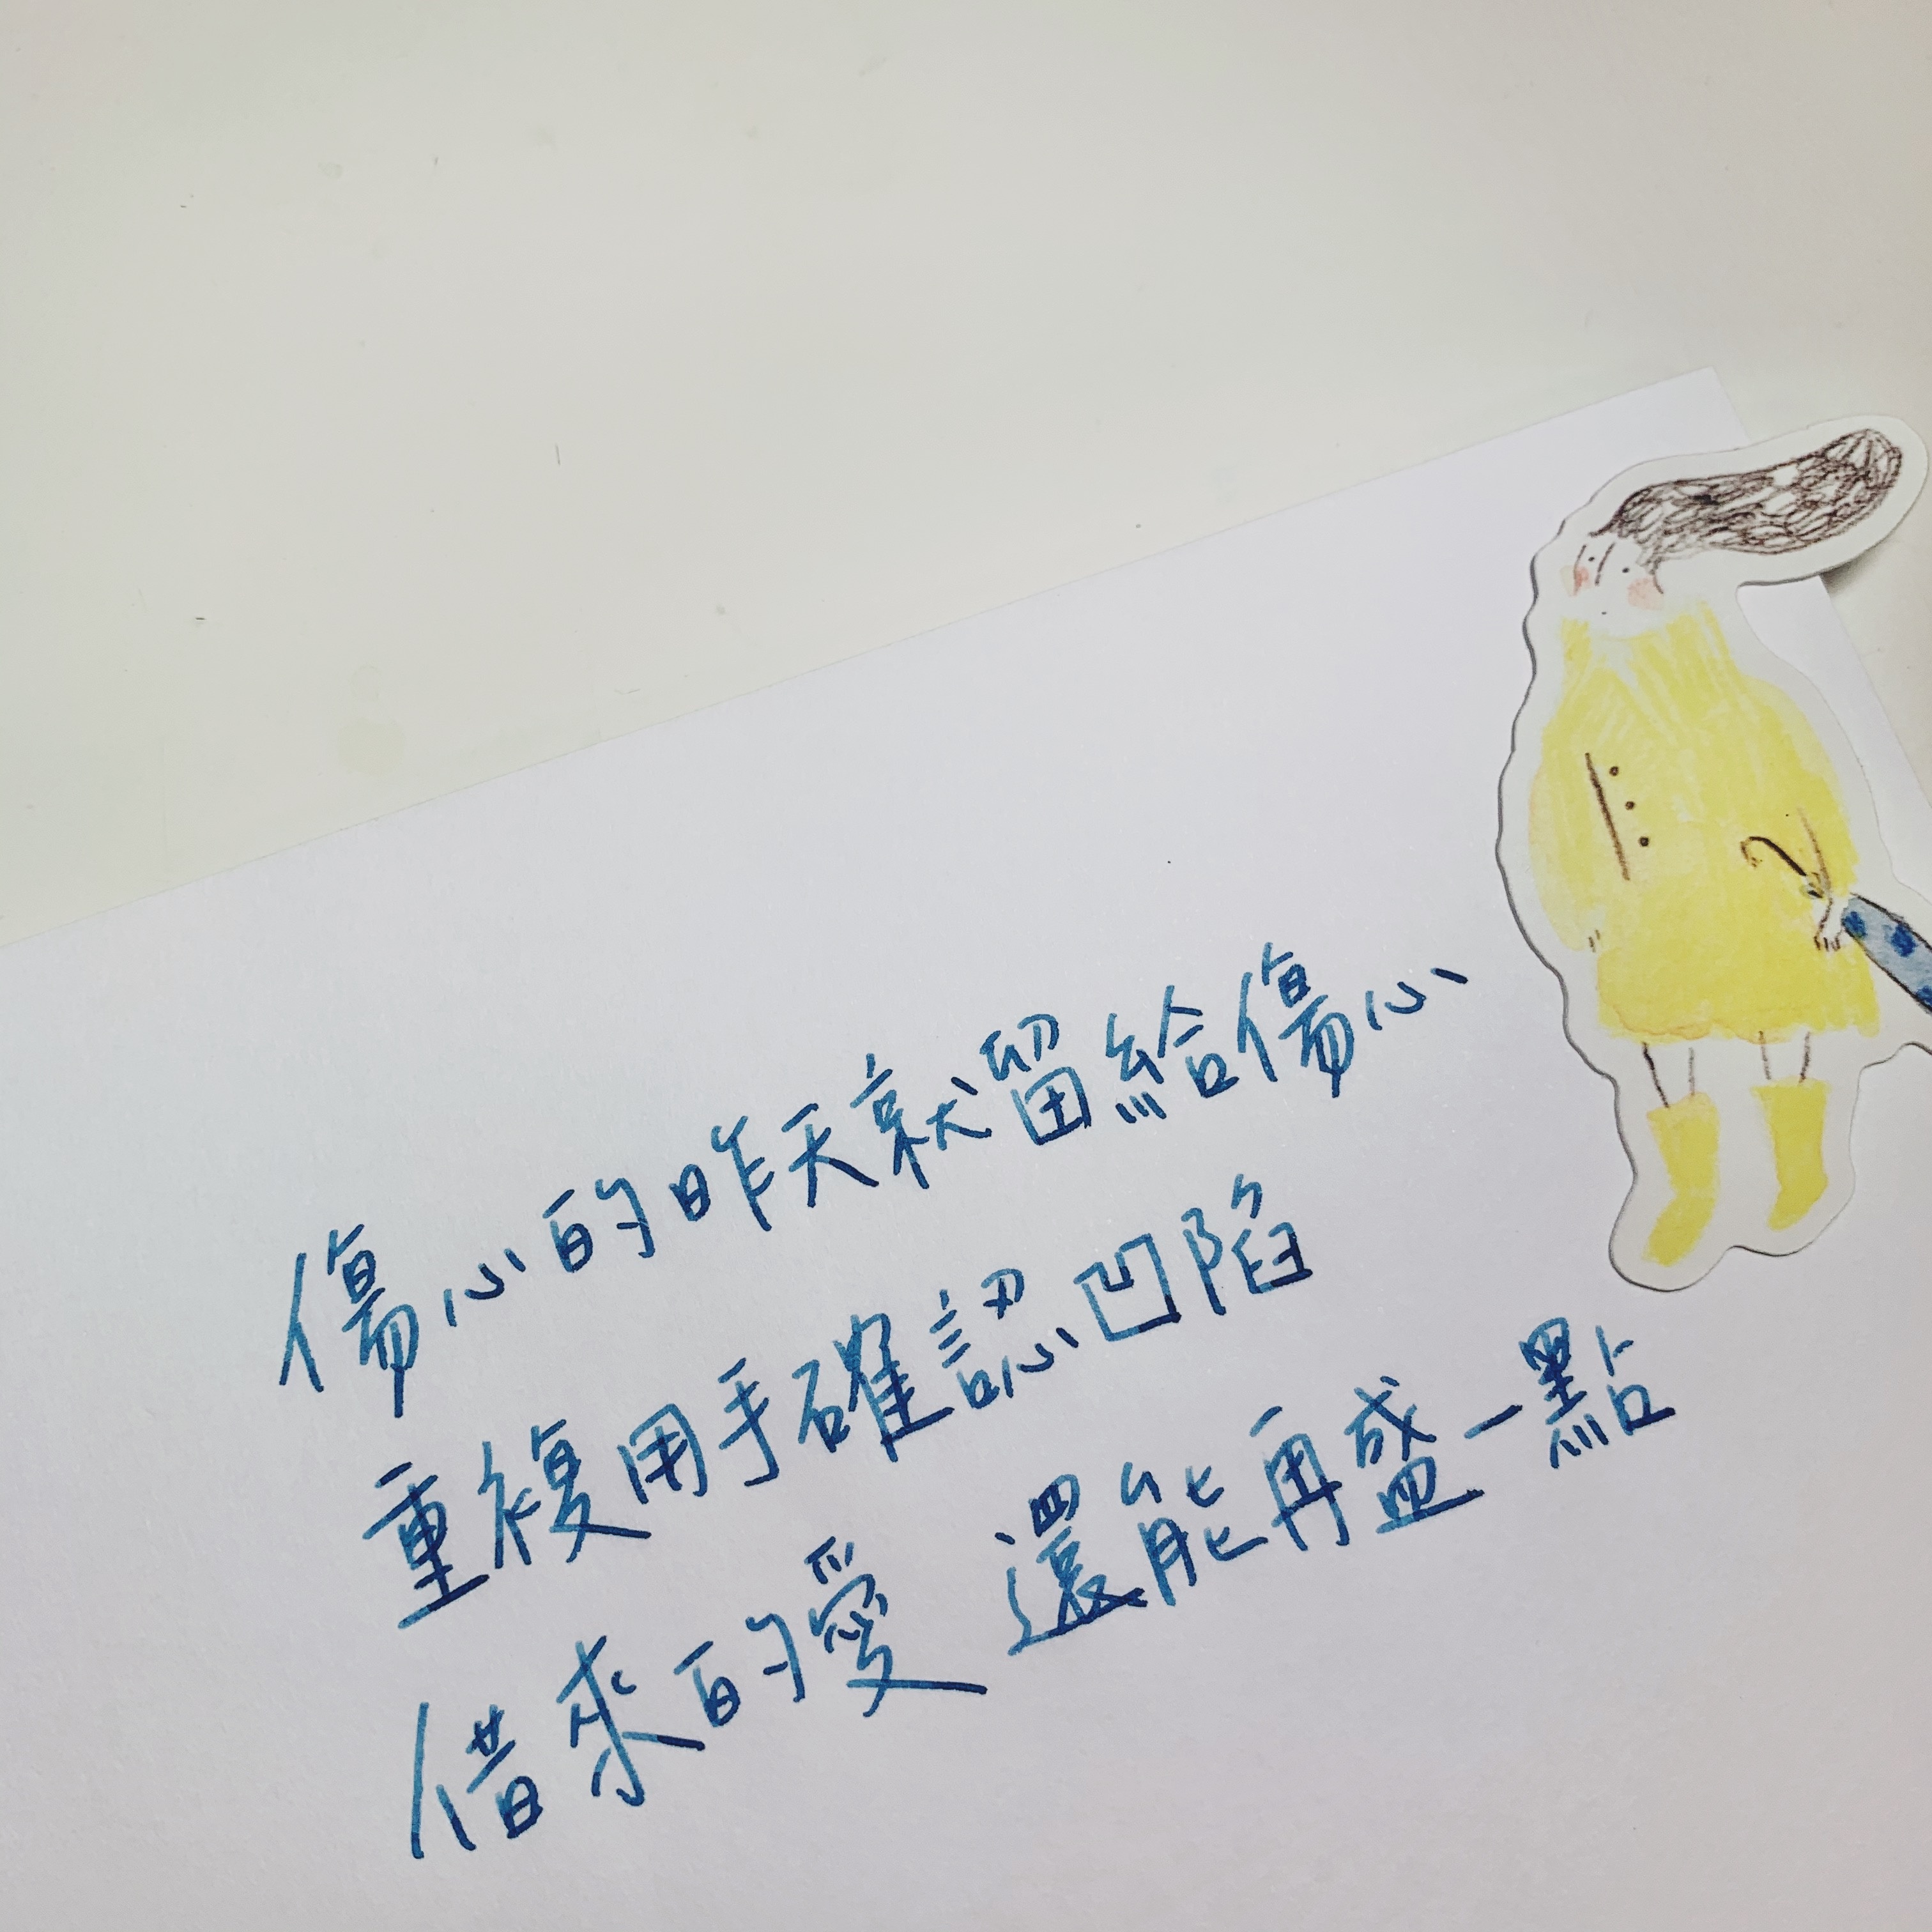 傷心的昨天就留給傷心
重複用手確認凹陷
借來的愛 還能再盛一點